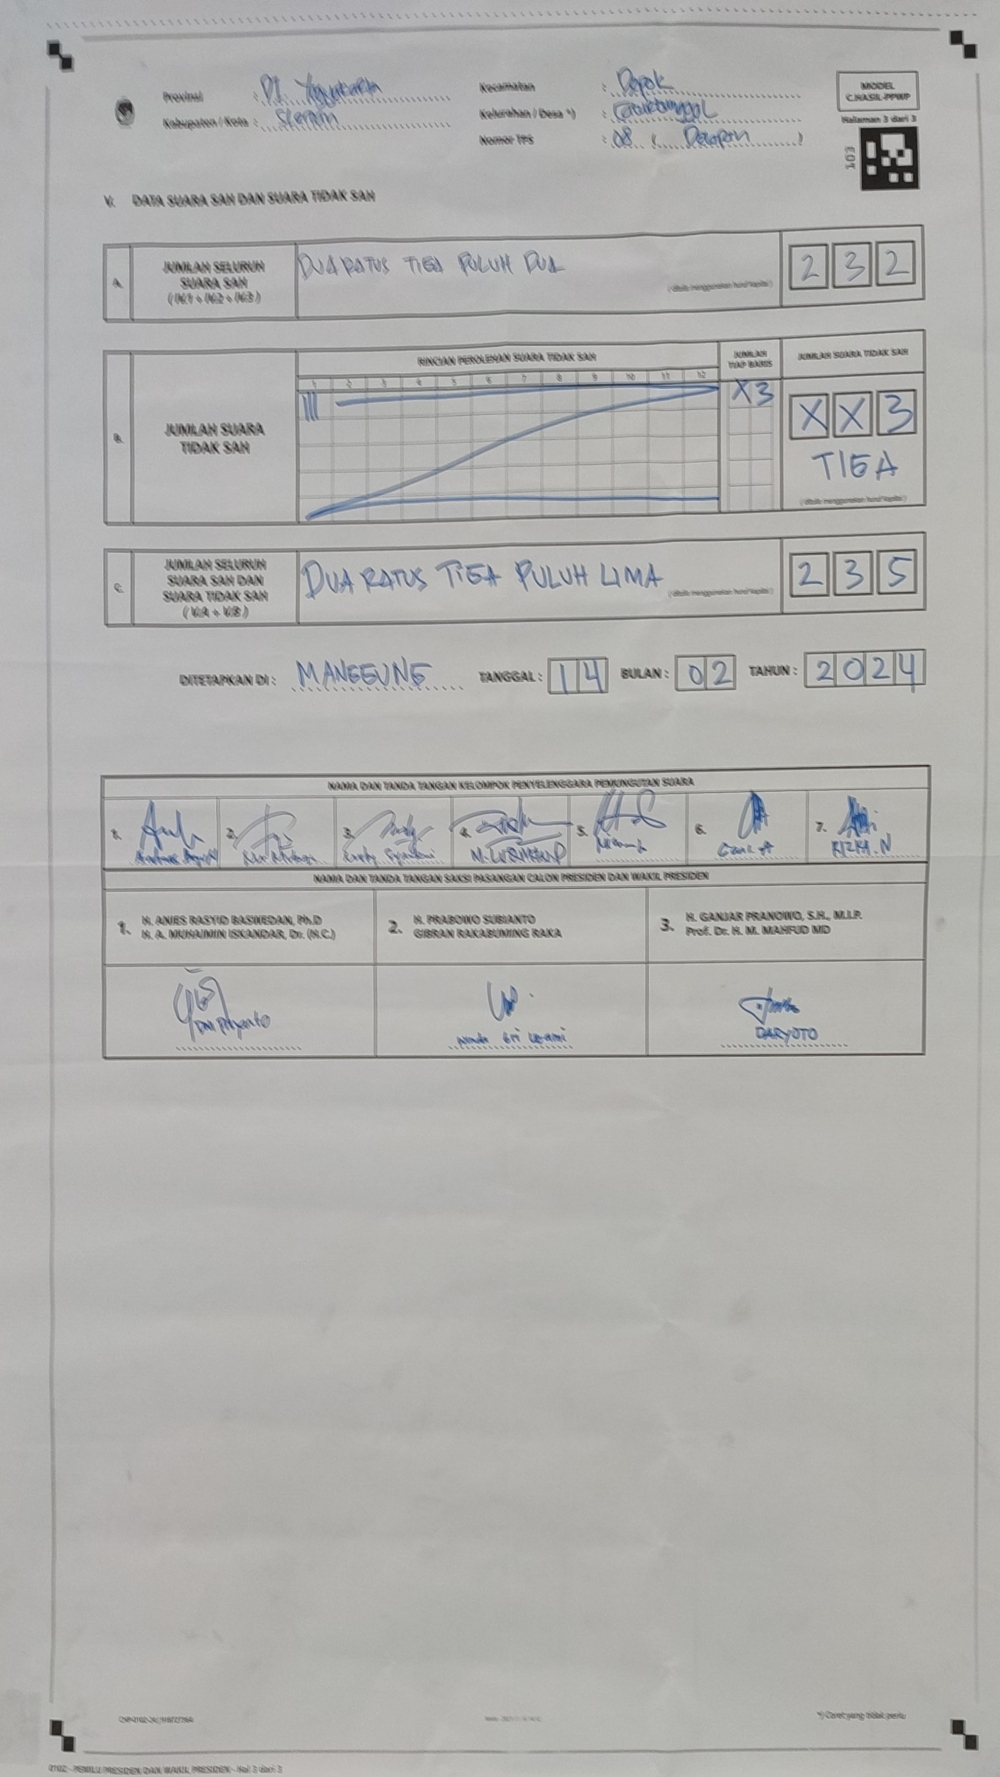 Provinsi : DI. Yogyakarta
Kabupaten / Kota : Sleman
Kecamatan : Depok
Kelurahan / Desa *) : Caturtunggal
Nomor TPS : 08 ( Delapan )
MODEL
C.HASIL-PPWP
Halaman 3 dari 3
103
V. DATA SUARA SAH DAN SUARA TIDAK SAH
A. JUMLAH SELURUH
SUARA SAH
(IV.1 + IV.2 + IV.3)
DUA RATUS TIGA PULUH DUA
(ditulis menggunakan huruf kapital)
2 3 2
RINCIAN PEROLEHAN SUARA TIDAK SAH
JUMLAH
TIAP BARIS
JUMLAH SUARA TIDAK SAH
1 2 3 4 5 6 7 8 9 10 11 12
B. JUMLAH SUARA
TIDAK SAH
III
X3
X X 3
TIGA
(ditulis menggunakan huruf kapital)
C. JUMLAH SELURUH
SUARA SAH DAN
SUARA TIDAK SAH
(V.A + V.B)
DUA RATUS TIGA PULUH LIMA
(ditulis menggunakan huruf kapital)
2 3 5
DITETAPKAN DI : MANGGUNG TANGGAL : 14 BULAN : 02 TAHUN : 2024
NAMA DAN TANDA TANGAN KELOMPOK PENYELENGGARA PEMUNGUTAN SUARA
1. 2. 3. 4. 5. 6. 7.
RIZKA.N
NAMA DAN TANDA TANGAN SAKSI PASANGAN CALON PRESIDEN DAN WAKIL PRESIDEN
1. H. ANIES RASYID BASWEDAN, Ph.D
H. A. MUHAIMIN ISKANDAR, Dr. (H.C.)
2. H. PRABOWO SUBIANTO
GIBRAN RAKABUMING RAKA
3. H. GANJAR PRANOWO, S.H., M.I.P.
Prof. Dr. H. M. MAHFUD MD
Sri Utami
DARYOTO
*) Coret yang tidak perlu
0102 - PEMILU PRESIDEN DAN WAKIL PRESIDEN - Hal 3 dari 3